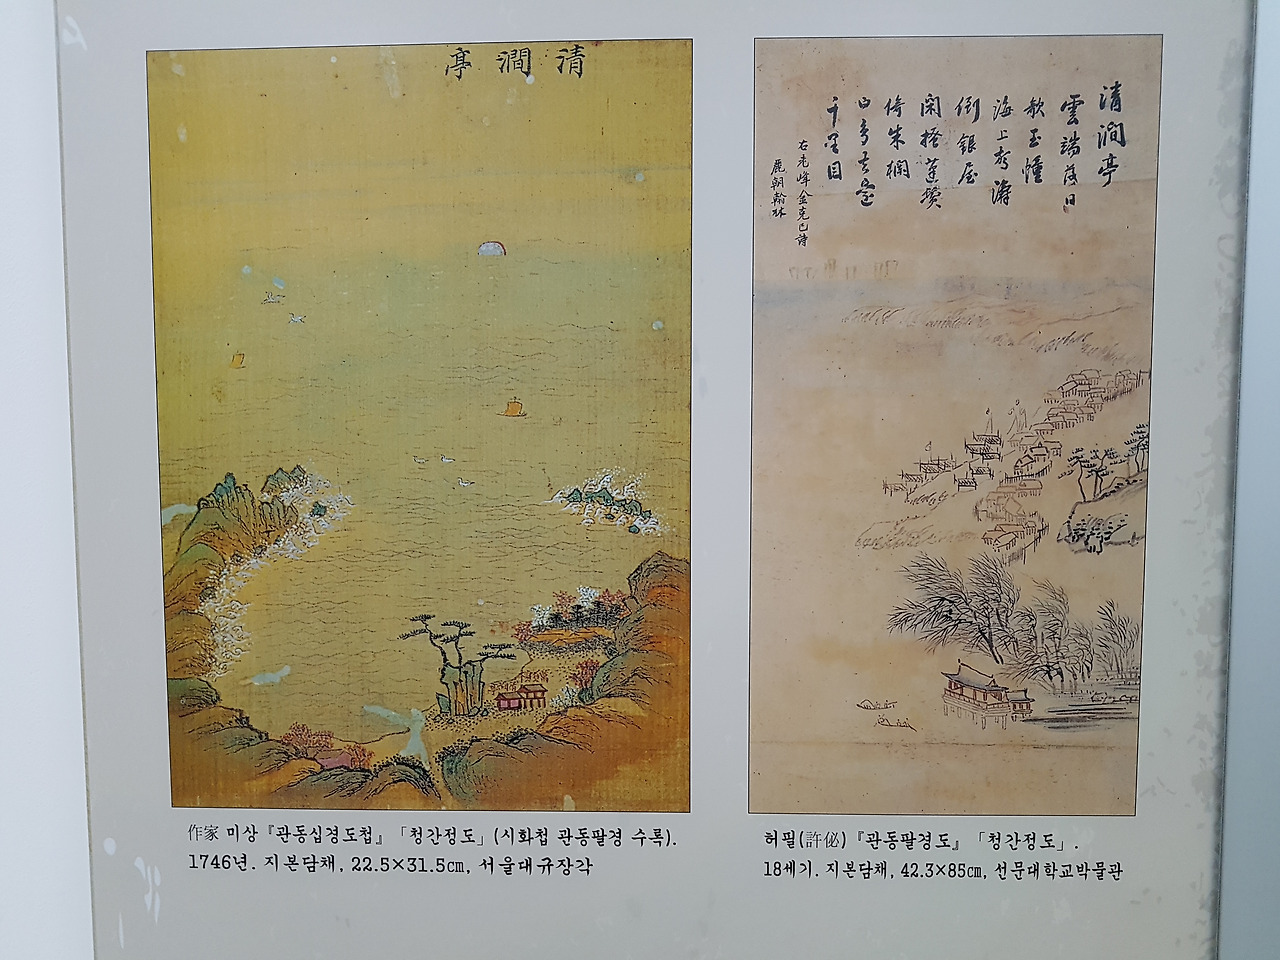 清澗亭
作家 미상『관동십경도첩』「청간정도」(시화첩 관동팔경 수록).
1746년. 지본담채, 22.5×31.5㎝, 서울대규장각
清澗亭
雲端落日
欹玉幢
海上驚濤
倒銀屋
閑搔蓬鬢
倚朱欄
白鳥去
千里目
右老峰金克己詩
麗朝翰林
허필(許佖)『관동팔경도』「청간정도」.
18세기. 지본담채, 42.3×85㎝, 선문대학교박물관